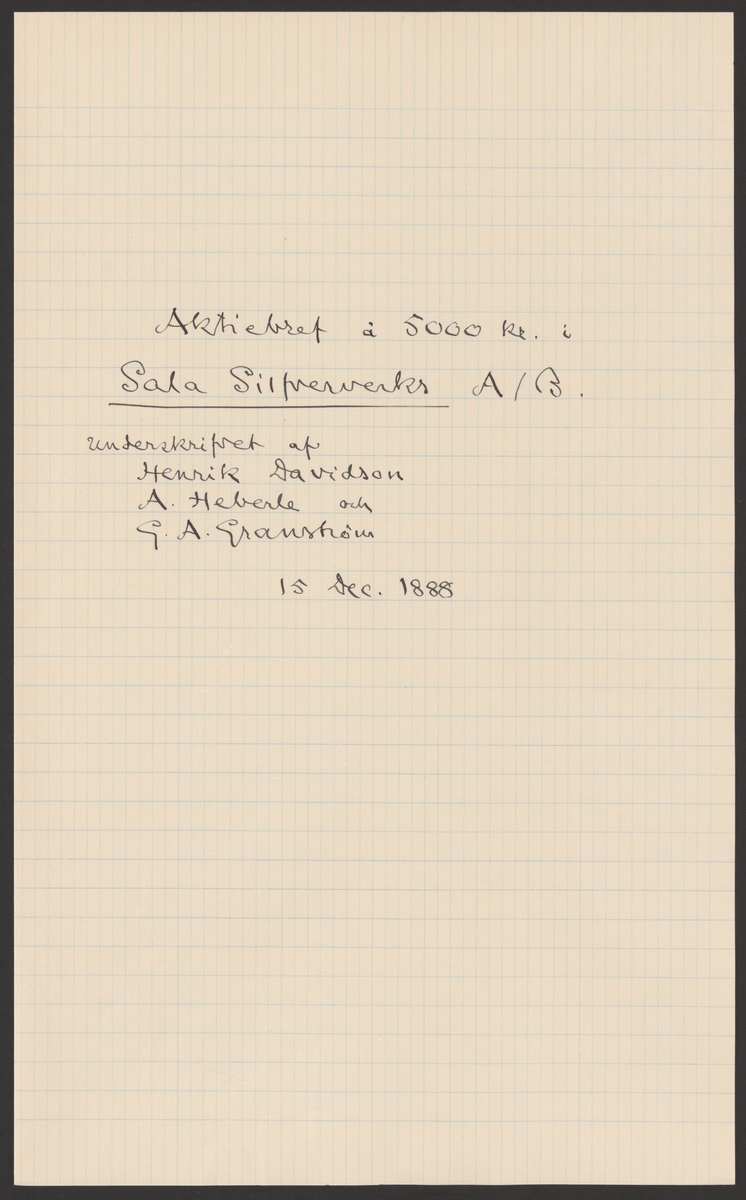 Aktiebref à 5000 kr. i
Sala Silfververks A/B.
underskrifvet af
Henrik Davidson
A. Heberle och
G. A. Granström
15 Dec. 1888